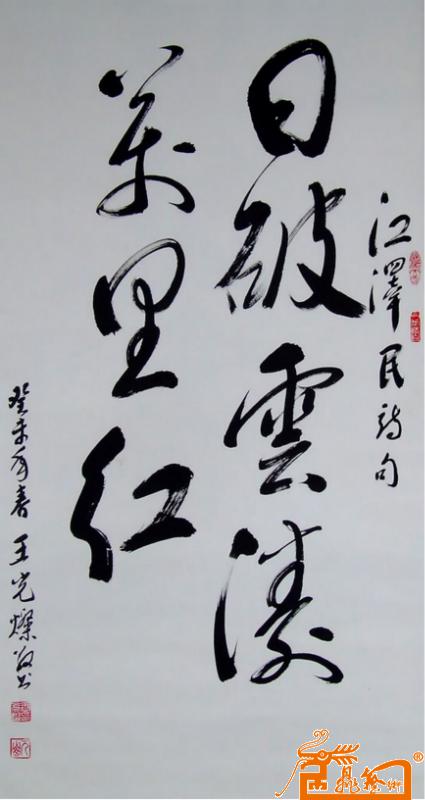 江澤民詩句
日破雲濤
萬里紅
癸未年春王光燦敬书